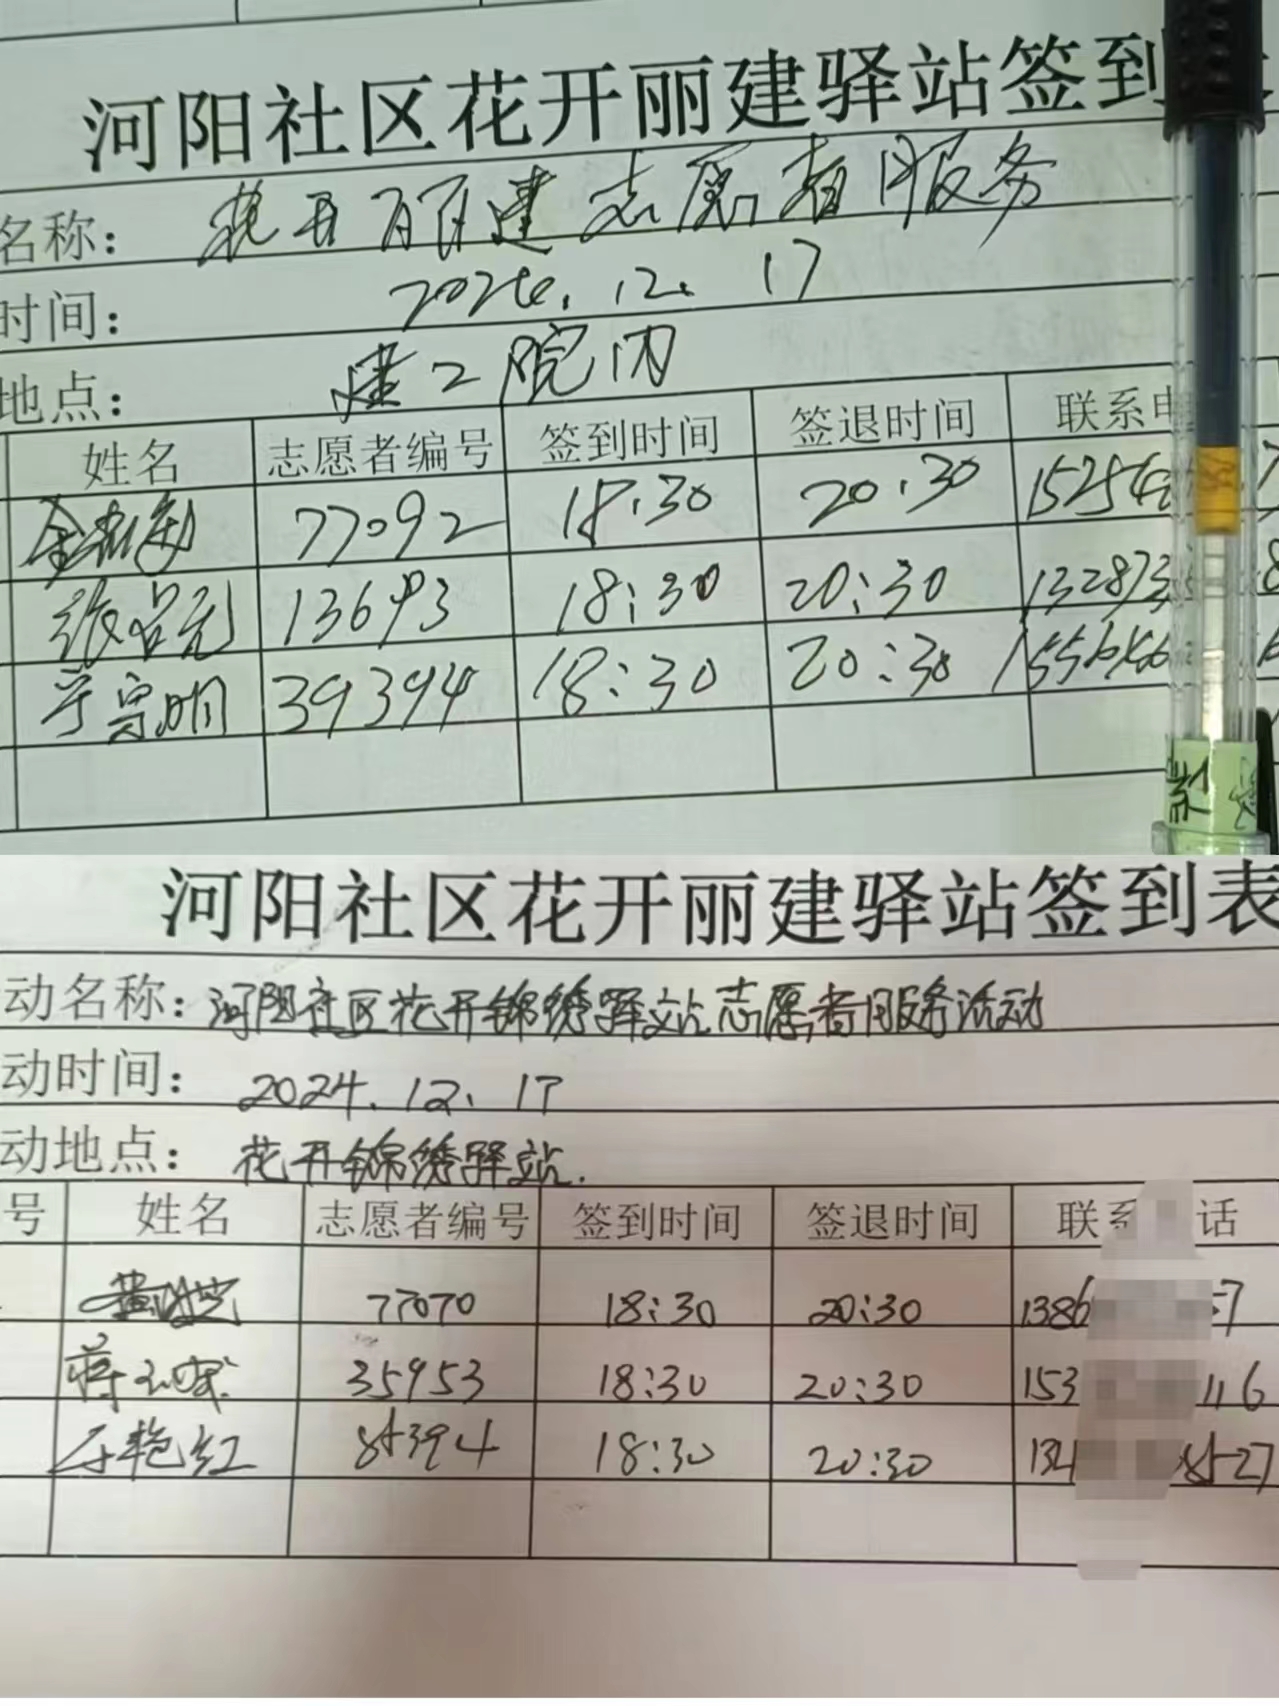 河阳社区花开丽建驿站签到
名称： 花开丽建志愿者服务
时间： 2024.12.17
地点： 建工院内
姓名 志愿者编号 签到时间 签退时间 联系电
77092 18:30 20:30 15254
13693 18:30 20:30 132873 8
守明 39394 18:30 20:30 155
河阳社区花开丽建驿站签到表
动名称： 河阳社区花开锦绣驿站志愿者服务活动
动时间： 2024.12.17
动地点： 花开锦绣驿站.
号 姓名 志愿者编号 签到时间 签退时间 联系 话
77070 18:30 20:30 1386 7
蒋 35953 18:30 20:30 153 116
艳红 85394 18:30 20:30 134 8527